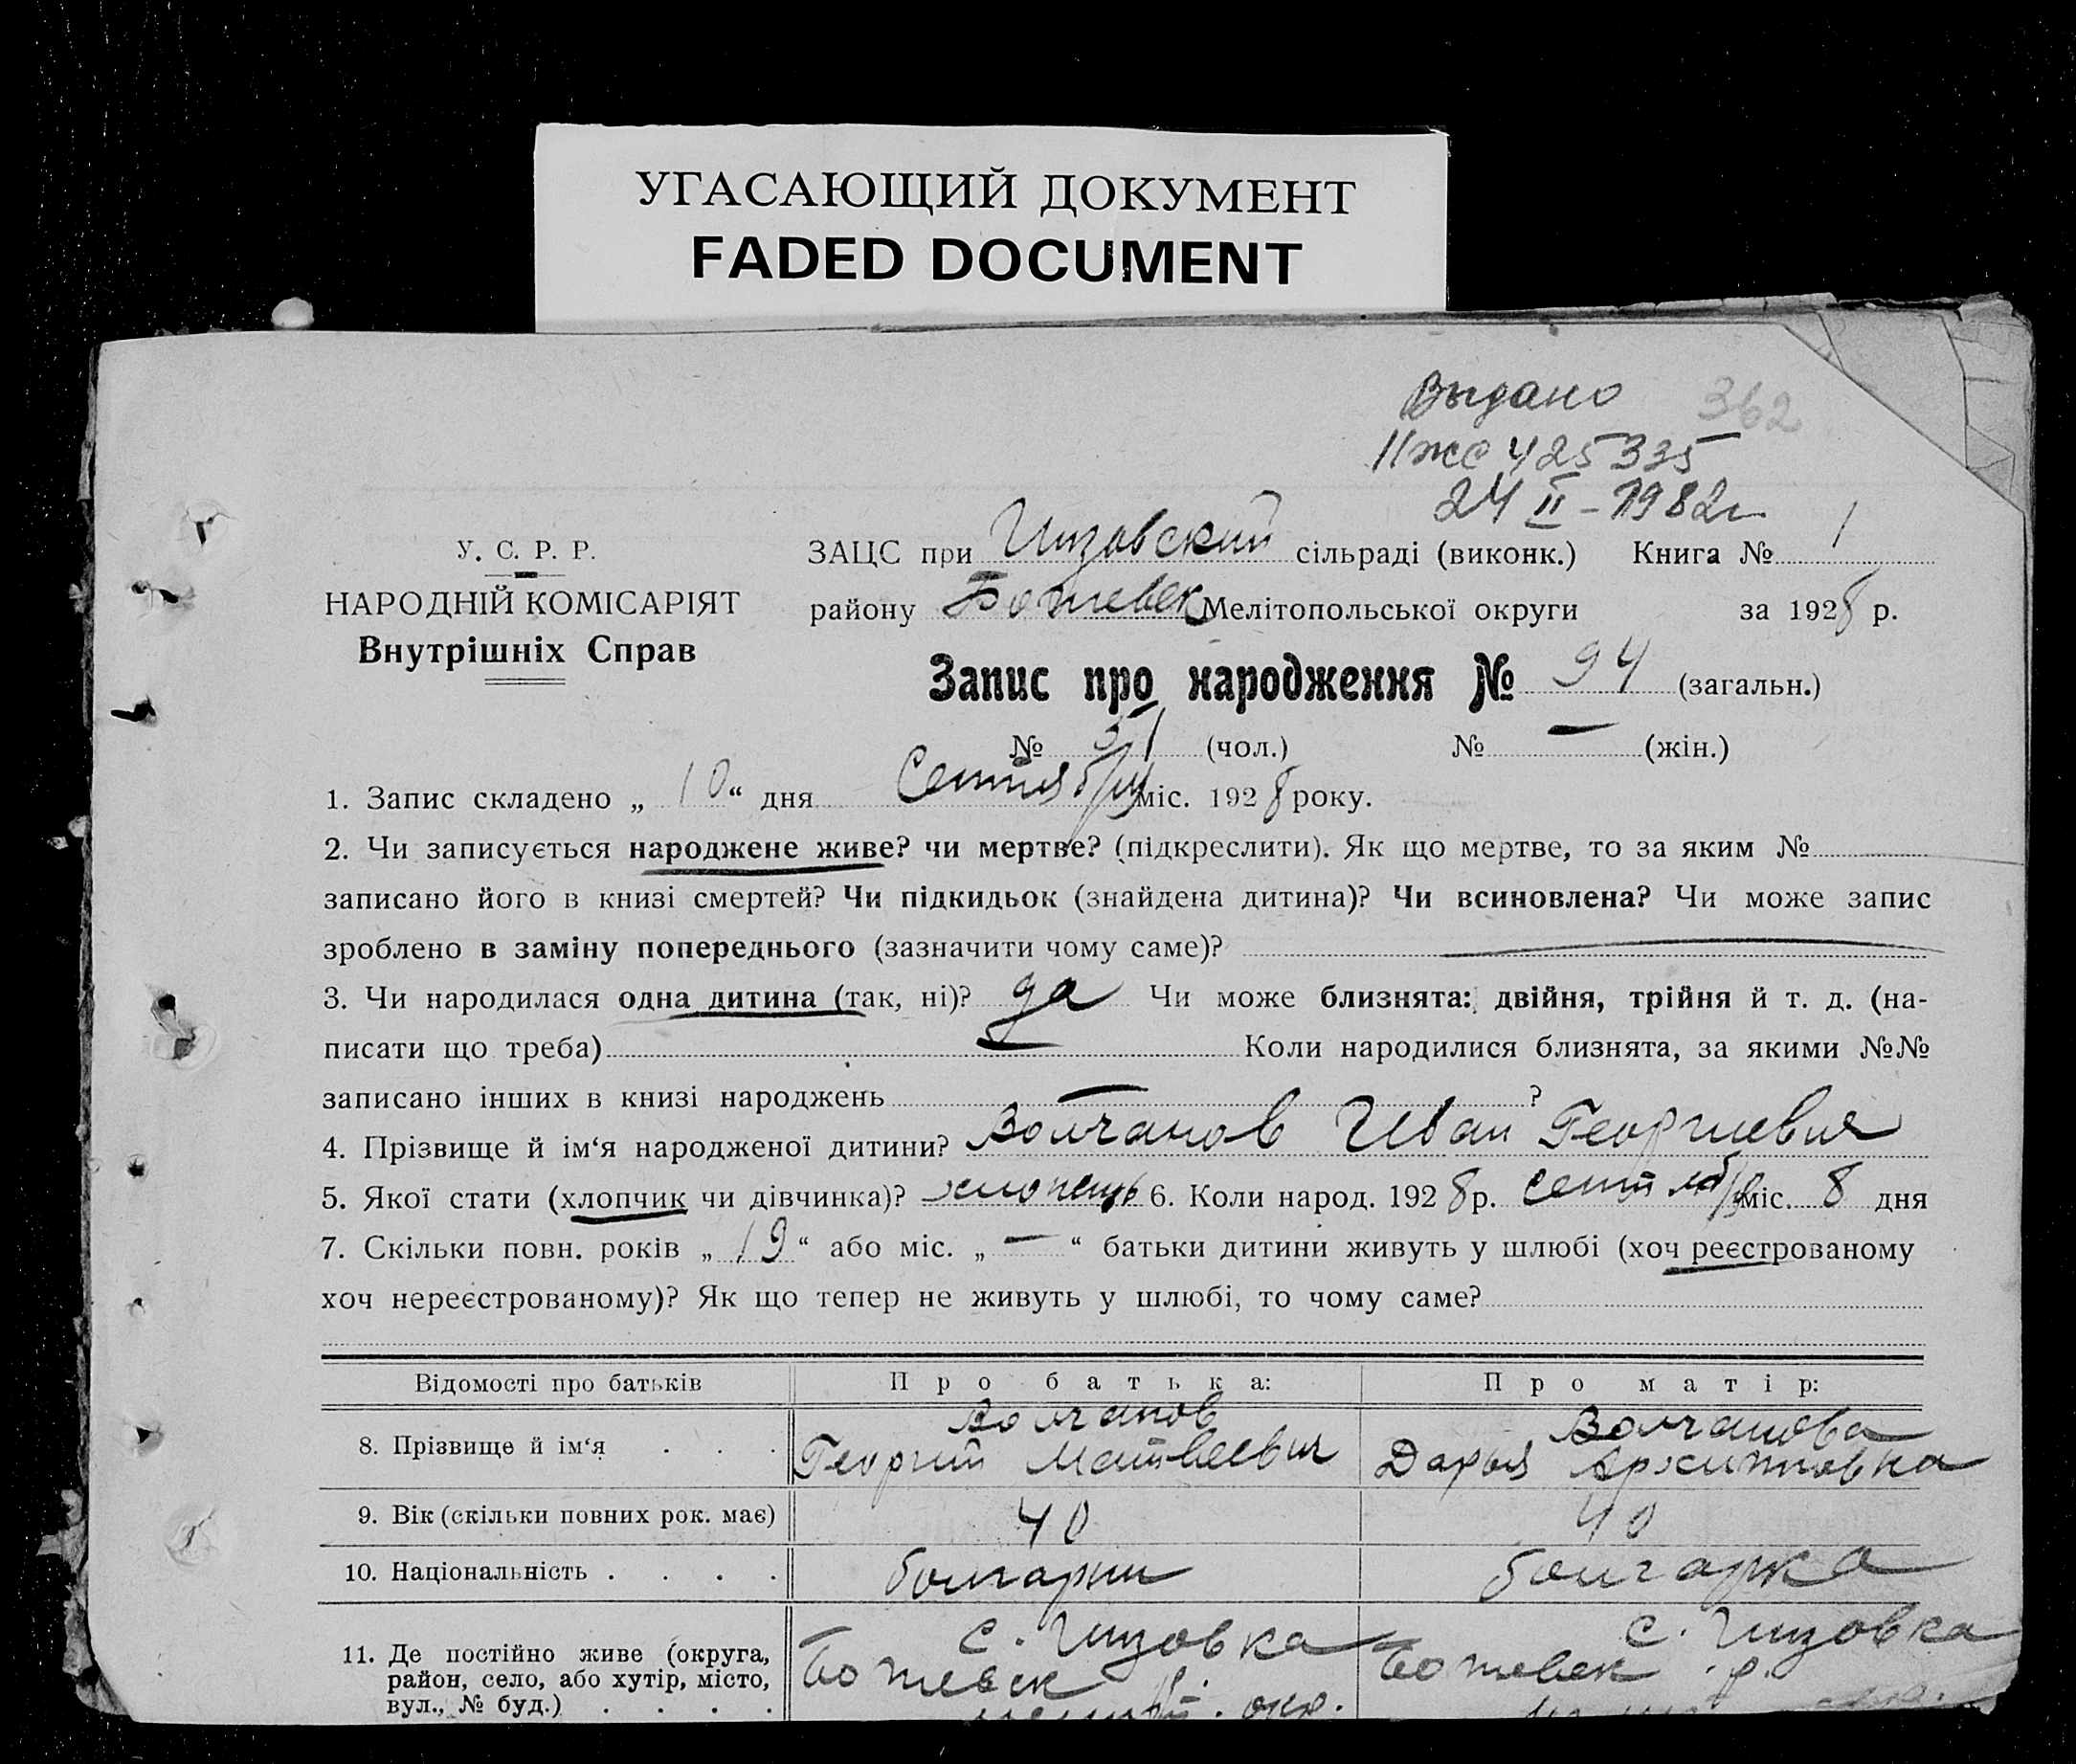 УГАСАЮЩИЙ ДОКУМЕНТ
FADED DOCUMENT
Выдано 362
II жс 425335
24 II - 1982 г
У. С. Р. Р.
НАРОДНІЙ КОМІСАРІЯТ
Внутрішніх Справ
ЗАЦС при Гизовский сільраді (виконк.) Книга № 1
району Ботевск Мелітопольської округи за 1928 р.
Запис про народження № 94 (загальн.)
№ 51 (чол.) № — (жін.)
1. Запис складено „ 10 “ дня Сентября міс. 1928 року.
2. Чи записується народжене живе? чи мертве? (підкреслити). Як що мертве, то за яким №
записано його в книзі смертей? Чи підкидьок (знайдена дитина)? Чи всиновлена? Чи може запис
зроблено в заміну попереднього (зазначити чому саме)? —
3. Чи народилася одна дитина (так, ні)? да Чи може близнята: двійня, трійня й т. д. (на-
писати що треба) — Коли народилися близнята, за якими №№
записано інших в книзі народжень — ?
4. Прізвище й ім‘я народженої дитини? Волчанов Иван Георгиевич
5. Якої стати (хлопчик чи дівчинка)? хлопець 6. Коли народ. 1928 р. сентября міс. 8 дня
7. Скільки повн. років „ 19 “ або міс. „ — “ батьки дитини живуть у шлюбі (хоч реєстрованому
хоч нереєстрованому)? Як що тепер не живуть у шлюбі, то чому саме?
Відомості про батьків Про батька: Про матір:
8. Прізвище й ім‘я . . . Волчанов Волчанова
Георгий Матвеевич Дарья Архиповна
9. Вік (скільки повних рок. має) 40 40
10. Національність . . . . болгарин болгарка
11. Де постійно живе (округа, с. Гизовка с. Гизовка
район, село, або хутір, місто, Ботевск Ботевск р.
вул., № буд.) . . . . окр.